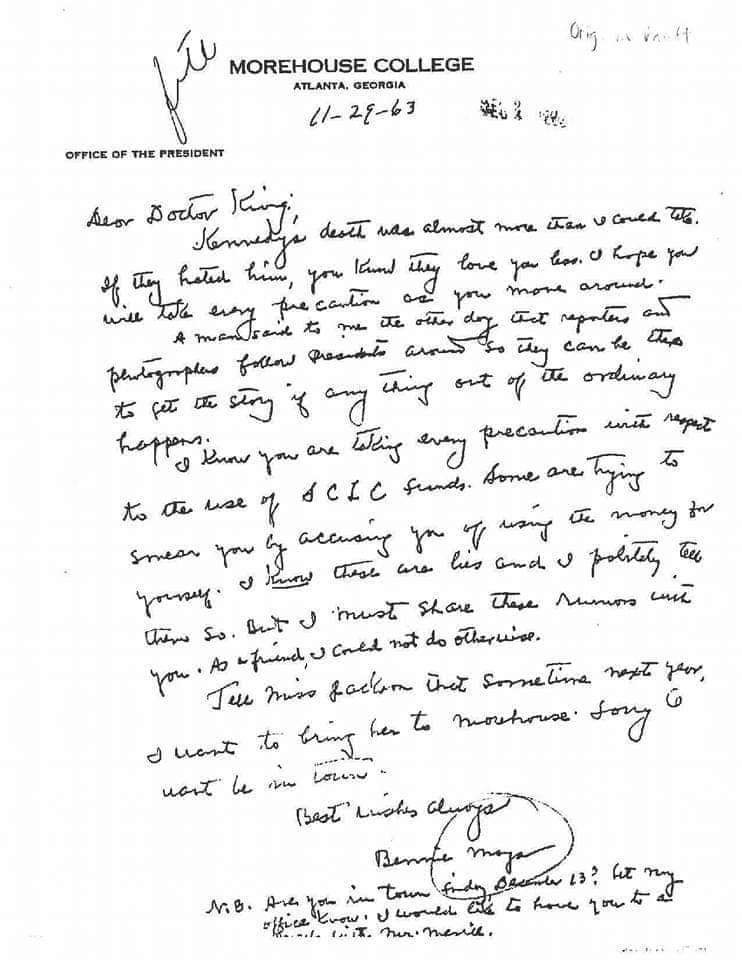 Orig. in vault
file
MOREHOUSE COLLEGE
ATLANTA, GEORGIA
11-29-63
OFFICE OF THE PRESIDENT
Dear Doctor King,
Kennedy's death was almost more than I could take.
If they hated him, you know they love you less. I hope you
will take every precaution as you move around.
A man said to me the other day that reporters and
photographers follow Presidents around so they can be there
to get the story if any thing out of the ordinary
happens.
I know you are taking every precaution with respect
to the use of SCLC funds. Some are trying to
smear you by accusing you of using the money for
yourself. I know these are lies and I politely tell
them so. But I must share these rumors with
you. As a friend, I could not do otherwise.
Tell Miss Jackson that sometime next year,
I want to bring her to Morehouse. Sorry I
wont be in town.
Best wishes always
Bennie Mays
N.B. Are you in town Friday December 13? Let my
office know. I would like to have you to a
with Mr. Merrill.